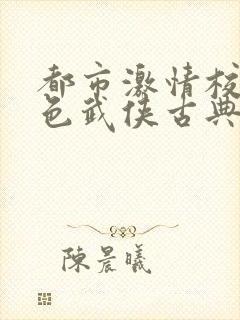 都市激情校
色武侠古典
陳晨曦